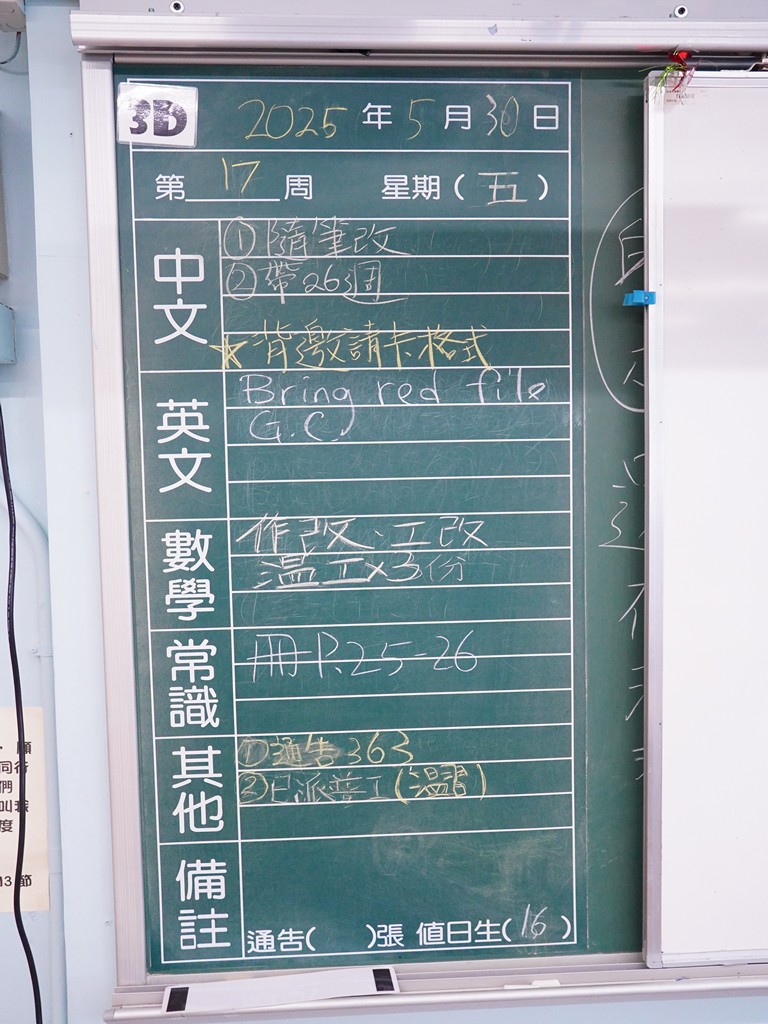 3D
2025年5月30日
第17周 星期(五)
中文
①隨筆改
②帶263週
★背邀請卡格式
英文
Bring red file
G.C.
數學
作改、工改
溫工×3份
常識
冊P.25-26
其他
①通告363
②已派普工(溫習)
備註
通告( )張 值日生(16)
願
同行
們
叫我
度
13節